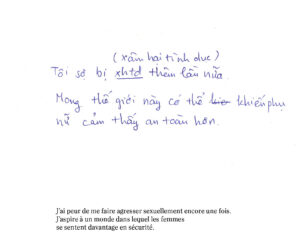 (xâm hại tình dục)
Tôi sợ bị xhtd thêm lần nữa.
Mong thế giới này có thể khiến phụ
nữ cảm thấy an toàn hơn.
J'ai peur de me faire agresser sexuellement encore une fois.
J'aspire à un monde dans lequel les femmes
se sentent davantage en sécurité.